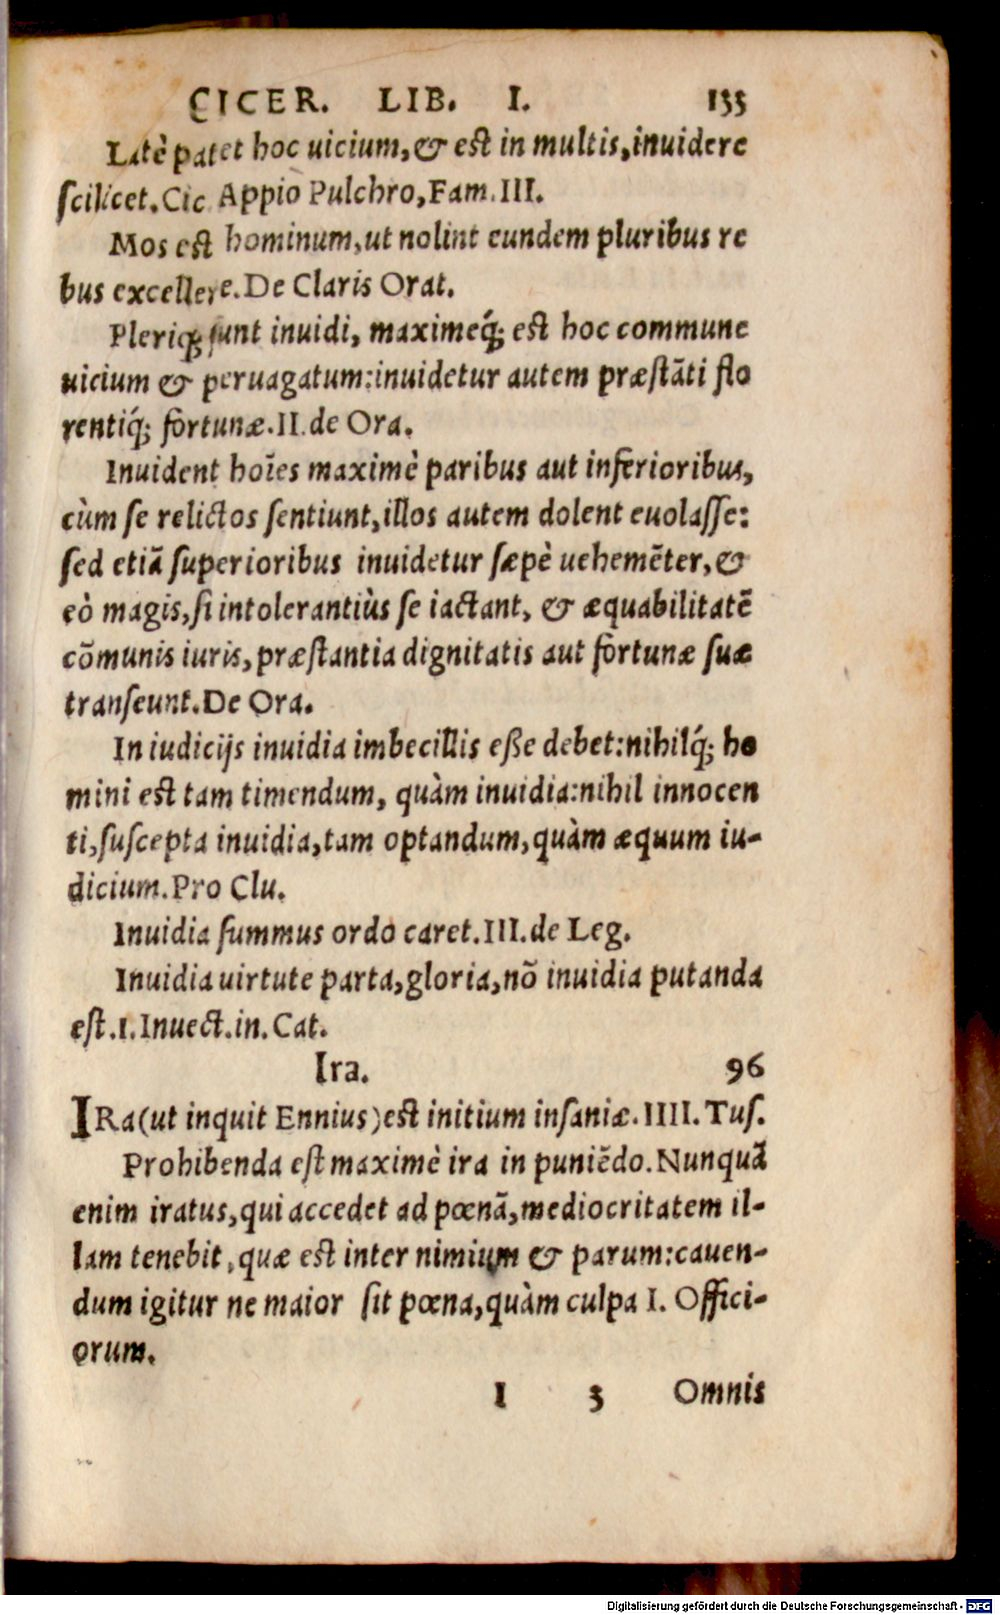 CICER. LIB. I. 133
Latè patet hoc uicium, & est in multis, inuidere
scilicet. Cic Appio Pulchro, Fam. III.
Mos est hominum, ut nolint eundem pluribus re
bus excellere. De Claris Orat.
Pleriq; sunt inuidi, maximeq́; est hoc commune
uicium & peruagatum: inuidetur autem præstãti flo
rentiq́; fortunæ. II. de Ora.
Inuident hoĩes maximè paribus aut inferioribus,
cùm se relictos sentiunt, illos autem dolent euolasse:
sed etiã superioribus inuidetur sæpè uehemẽter, &
eò magis, si intolerantiùs se iactant, & æquabilitatẽ
cõmunis iuris, præstantia dignitatis aut fortunæ suæ
transeunt. De Ora.
In iudicijs inuidia imbecillis eße debet: nihilq́; ho
mini est tam timendum, quàm inuidia: nihil innocen
ti, suscepta inuidia, tam optandum, quàm æquum iu-
dicium. Pro Clu.
Inuidia summus ordo caret. III. de Leg.
Inuidia uirtute parta, gloria, nõ inuidia putanda
est. 1. Inuect. in. Cat.
Ira. 96
IRa (ut inquit Ennius) est initium insaniæ. IIII. Tus.
Prohibenda est maximè ira in puniẽdo. Nunquã
enim iratus, qui accedet ad pœnã, mediocritatem il-
lam tenebit, quæ est inter nimium & parum: cauen-
dum igitur ne maior sit pœna, quàm culpa I. Offici-
orum.
I 3 Omnis
Digitalisierung gefördert durch die Deutsche Forschungsgemeinschaft - DFG